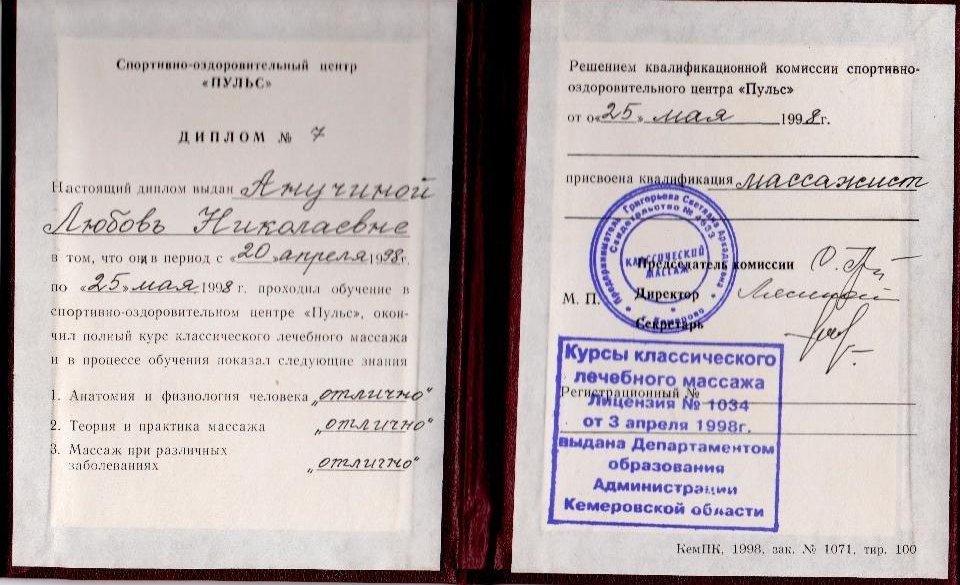 Спортивно-оздоровительный центр
«ПУЛЬС»
ДИПЛОМ № 7
Настоящий диплом выдан Анучиной
Любовь Николаевне
в том, что он в период с «20» апреля 1998г.
по «25» мая 1998 г. проходил обучение в
спортивно-оздоровительном центре «Пульс», окон-
чил полный курс классического лечебного массажа
и в процессе обучения показал следующие знания
1. Анатомия и физиология человека „отлично“
2. Теория и практика массажа „отлично“
3. Массаж при различных
заболеваниях „отлично“
Решением квалификационной комиссии спортивно-
оздоровительного центра «Пульс»
от о«25» мая 1998г.
присвоена квалификация массажист
Предприниматель Григорьева Светлана Аркадьевна
Свидетельство № 4633
КЛАССИЧЕСКИЙ
МАССАЖ
г. Кемерово
Председатель комиссии
М. П. Директор
Секретарь
Регистрационный №
Курсы классического
лечебного массажа
Лицензия № 1034
от 3 апреля 1998г.
выдана Департаментом
образования
Администрации
Кемеровской области
КемПК, 1998, зак. № 1071, тир. 100